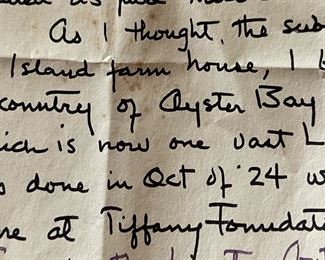 as
As I thought, the sub
Island farm house, I b
country of Oyster Bay
ich is now one vast L
s done in Oct of '24 w
ne at Tiffany Foundat